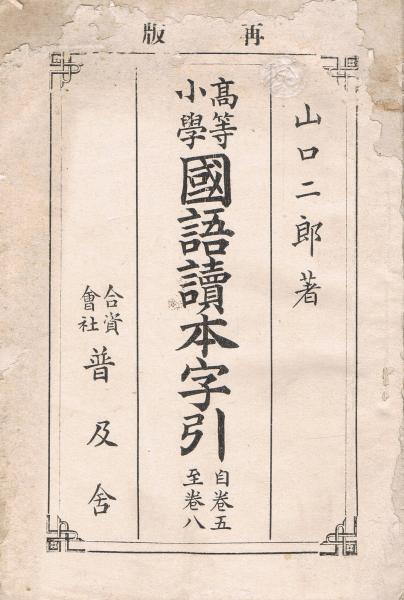 再版
山口二郎著
高等
小學
國語讀本字引
自卷五
至卷八
合資
會社
普及舍